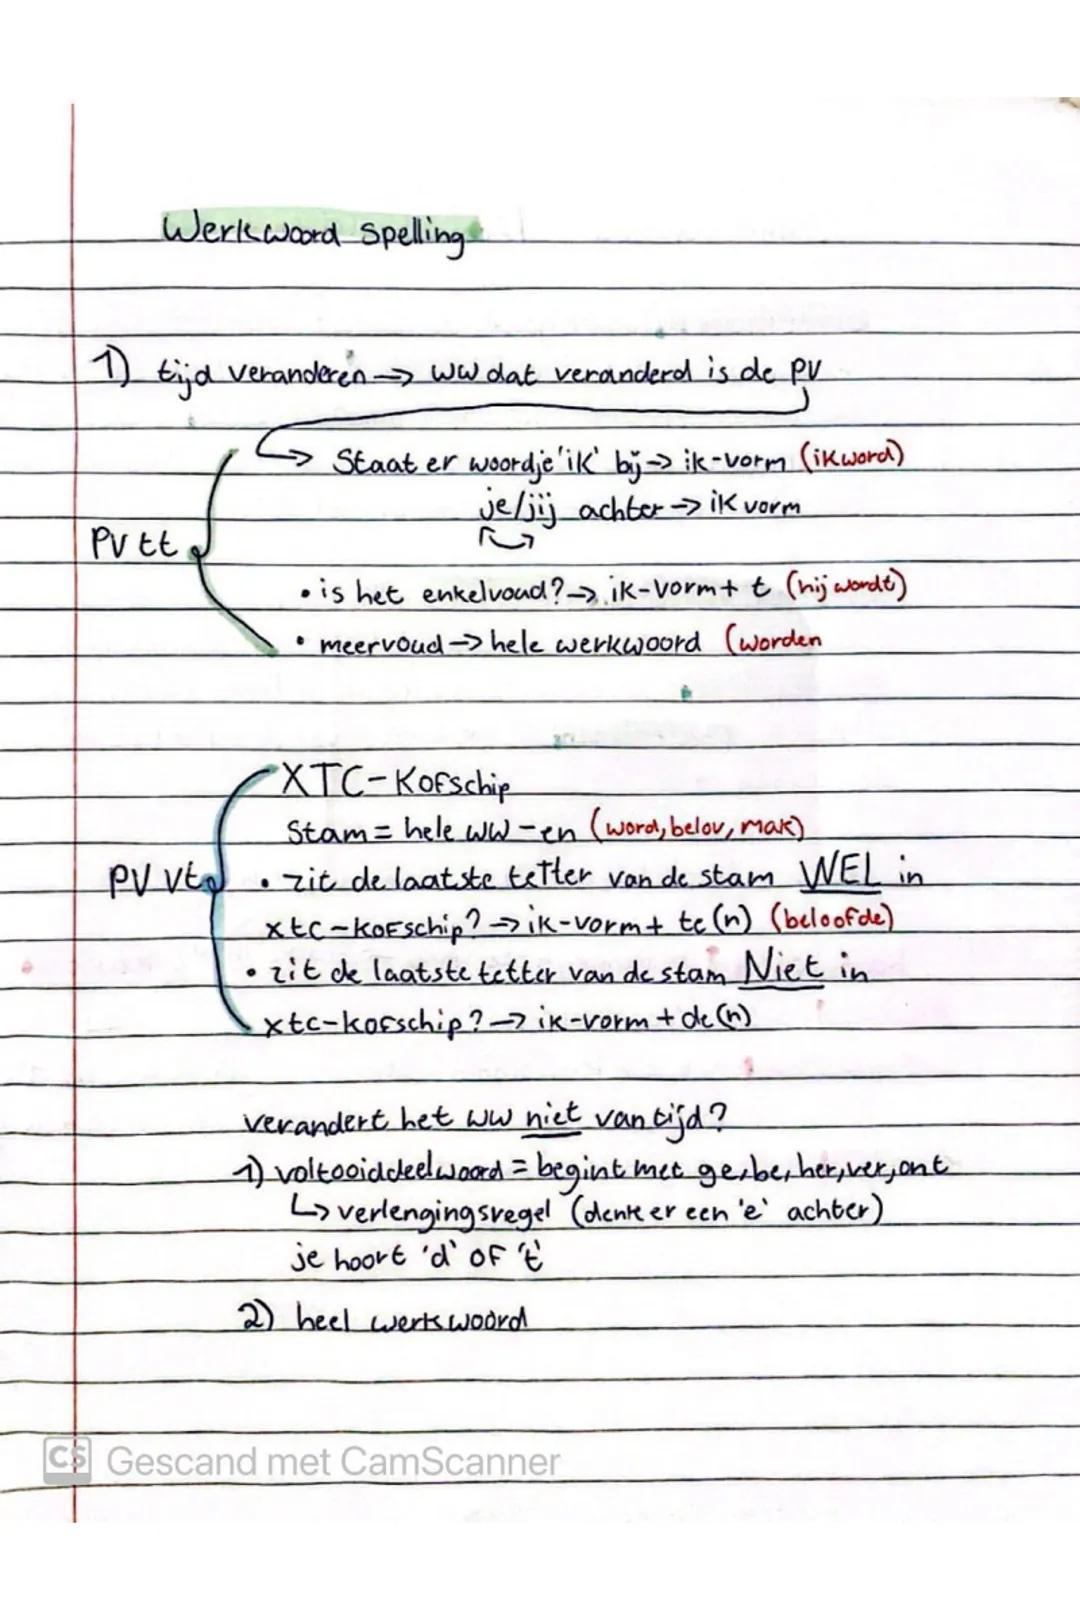 Werkwoord Spelling
1) tijd veranderen → ww dat veranderd is de PV
→ Staat er woordje 'ik' bij → ik-vorm (ik word)
je/jij achter → ik vorm
PV tt
• is het enkelvoud? → ik-vorm + t (hij wordt)
• meervoud → hele werkwoord (worden
XTC-Kofschip
Stam = hele ww -en (word, belov, mak)
PV vt
• zit de laatste letter van de stam WEL in
xtc-kofschip? → ik-vorm + te(n) (beloofde)
• zit de laatste letter van de stam Niet in
xtc-kofschip? → ik-vorm + de(n)
verandert het ww niet van tijd?
1) voltooiddeelwoord = begint met ge, be, her, ver, ont
↳ verlengingsregel (denk er een 'e' achter)
je hoort 'd' of 't'
2) heel werkwoord
CS Gescand met CamScanner